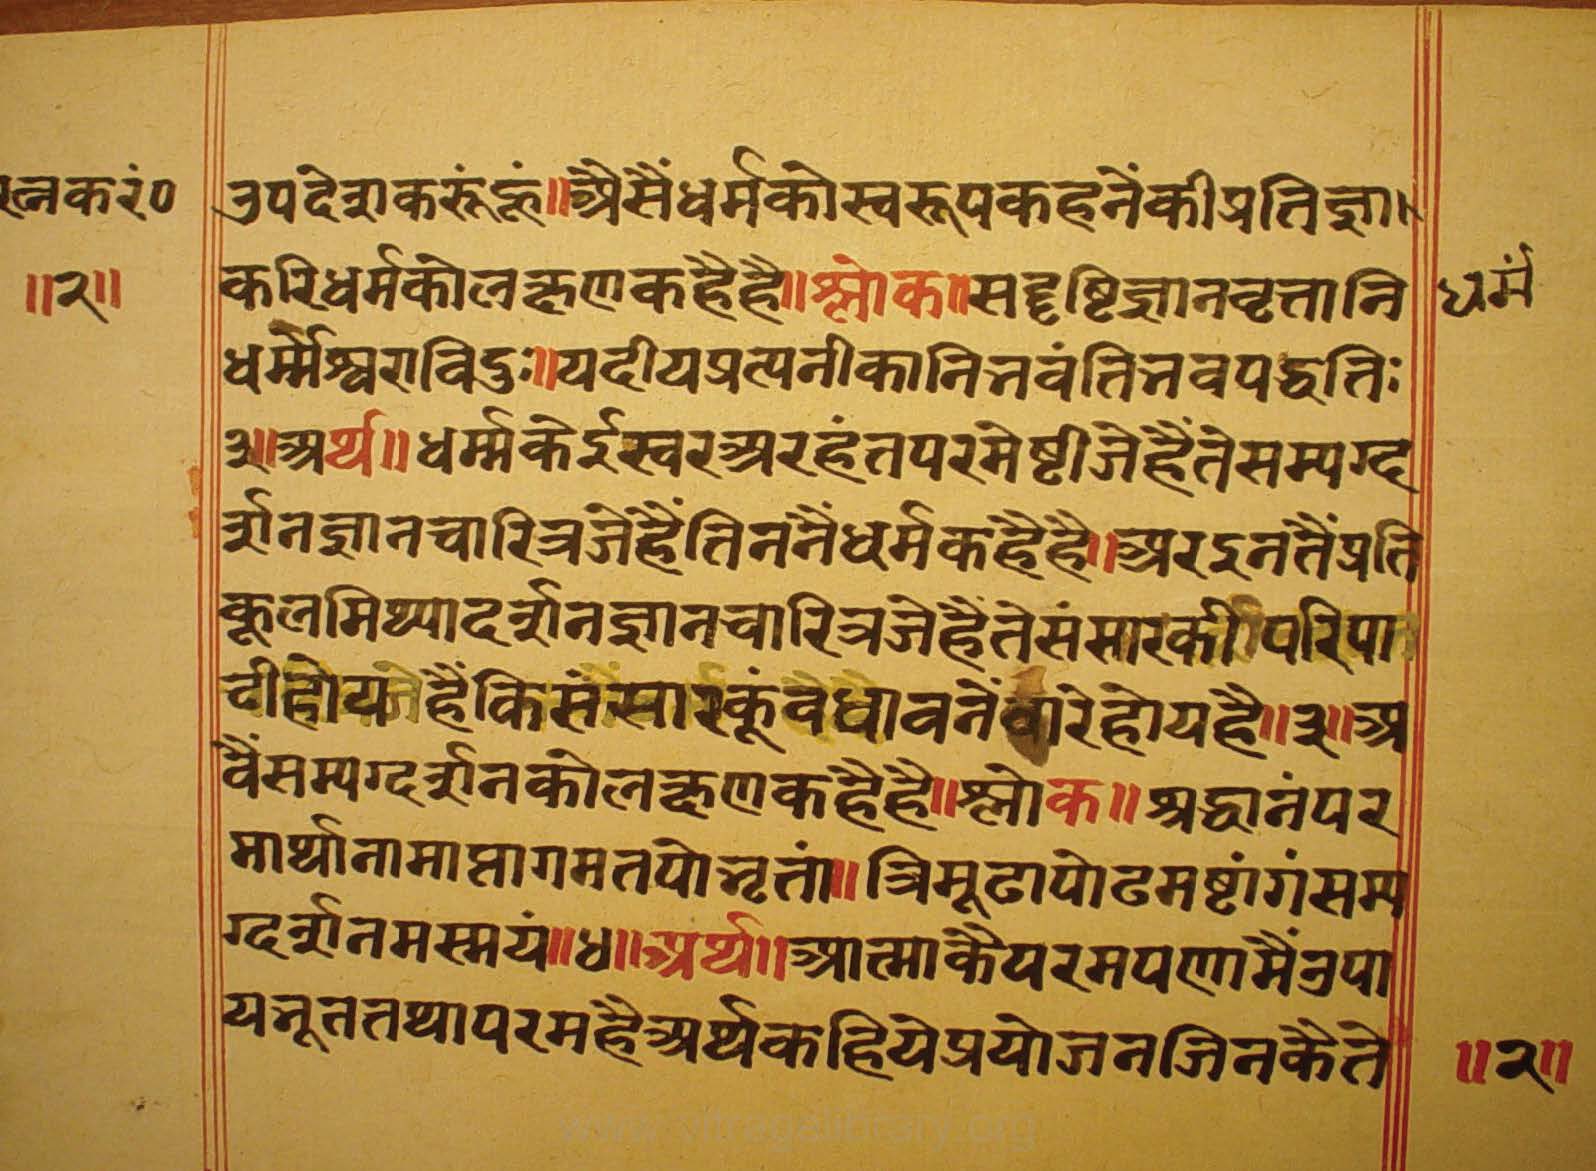 रत्नकरं०
॥२॥
उपदेशकरूंहूं॥अैसैंधर्मकोस्वरूपकहनेंकीप्रतिज्ञा।
करिधर्मकोलक्षणकहैहै॥श्लोक॥सद्दृष्टिज्ञानवृत्तानि
धर्म
धर्म्मेश्वराविदुः॥यदीयप्रत्यनीकानिभवंतिभवपद्धतिः
३॥अर्थ॥धर्म्मकेईस्वरअरहंतपरमेष्टीजेहैंतेसम्यग्द
र्शनज्ञानचारित्रजेहैंतिननैंधर्मकहैहै॥अरइनतैंप्रति
कूलमिथ्यादर्शनज्ञानचारित्रजेहैंतेसंसारकीपरिपा
टीहोयहैंकिसंसारकूंवधावनेंवारेहोयहै॥३॥अ
वैंसम्यग्दर्शनकोलक्षणकहैहै॥श्लोक॥श्रद्धानंपर
मार्थानामाप्तागमतपोभृत्तां॥त्रिमूढापोढमष्टांगंसम्य
ग्दर्शनमस्मयं॥४॥अर्थ॥आत्माकैपरमपणामैंउपा
यभूततथापरमहैअर्थकहियेप्रयोजनजिनकैते
॥२॥
www.vitragalibrary.org